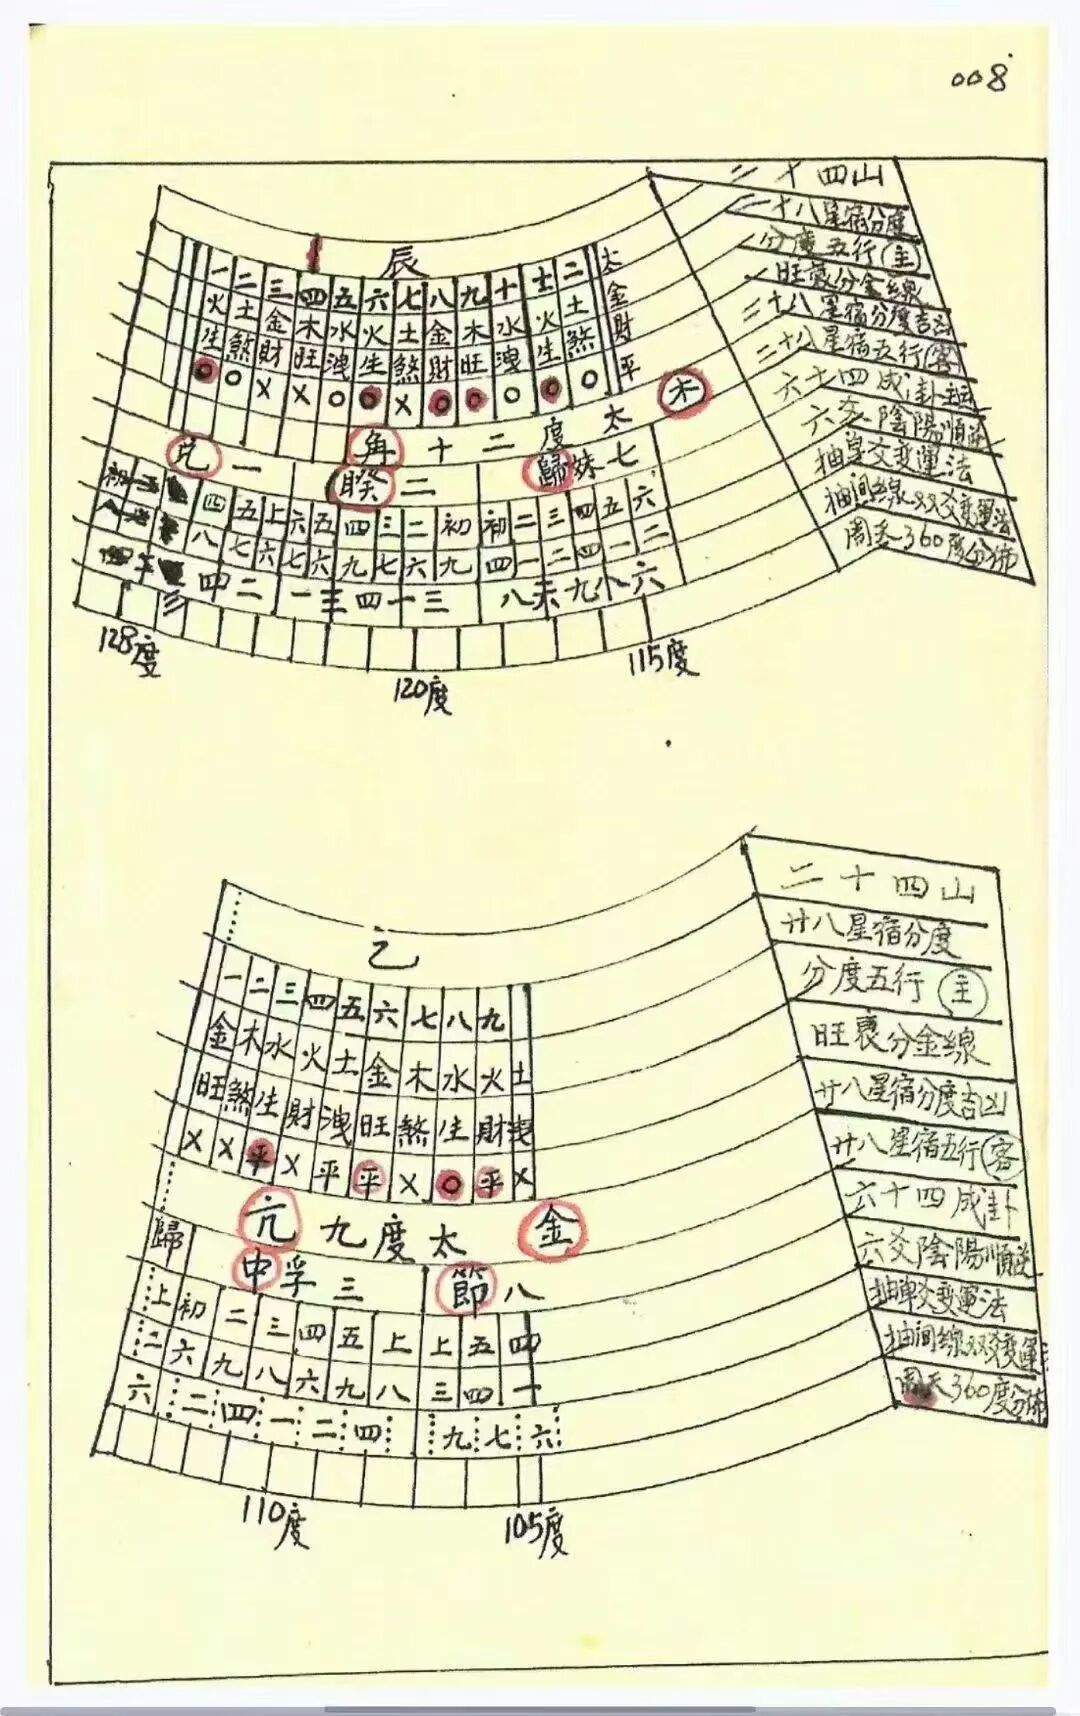 008
二十四山
二十八星宿分度
分度五行(主)
旺衰分金線
二十八星宿分度吉凶
二十八星宿五行(客)
六十四成卦
六爻陰陽順逆
抽爻變運法
抽间線双爻變運法
周天360度分佈
辰
一二三四五六七八九十十一二太
火土金木水火土金木水火土金
生煞財旺洩生煞財旺洩生煞財
○○××○○×○○○○○平
角十二度太木
兌一 睽二 歸妹七
四五上六五四三二初初二三四五六
八七六七六九七六九四一二四一二
四二一三四一三八六九八六
128度 120度 115度
乙
一二三四五六七八九
金木水火土金木水火土
旺煞生財洩旺煞生財洩
××平×平平×○平×
亢九度太金
歸 中孚三 節八
上初二三四五上上五四
二六九八六九八三四一
六二四一二四九七六
110度 105度
二十四山
廿八星宿分度
分度五行(主)
旺衰分金線
廿八星宿分度吉凶
廿八星宿五行(客)
六十四成卦
六爻陰陽順逆
抽爻變運法
抽间線双爻變運
周天360度分佈